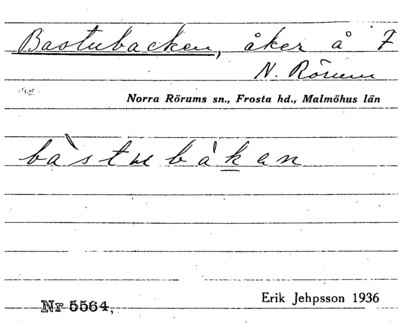 Bastubacken, åker å 7
N. Rörum
Norra Rörums sn., Frosta hd., Malmöhus län
bàstu bákan
Erik Jehpsson 1936
Nr 5564,